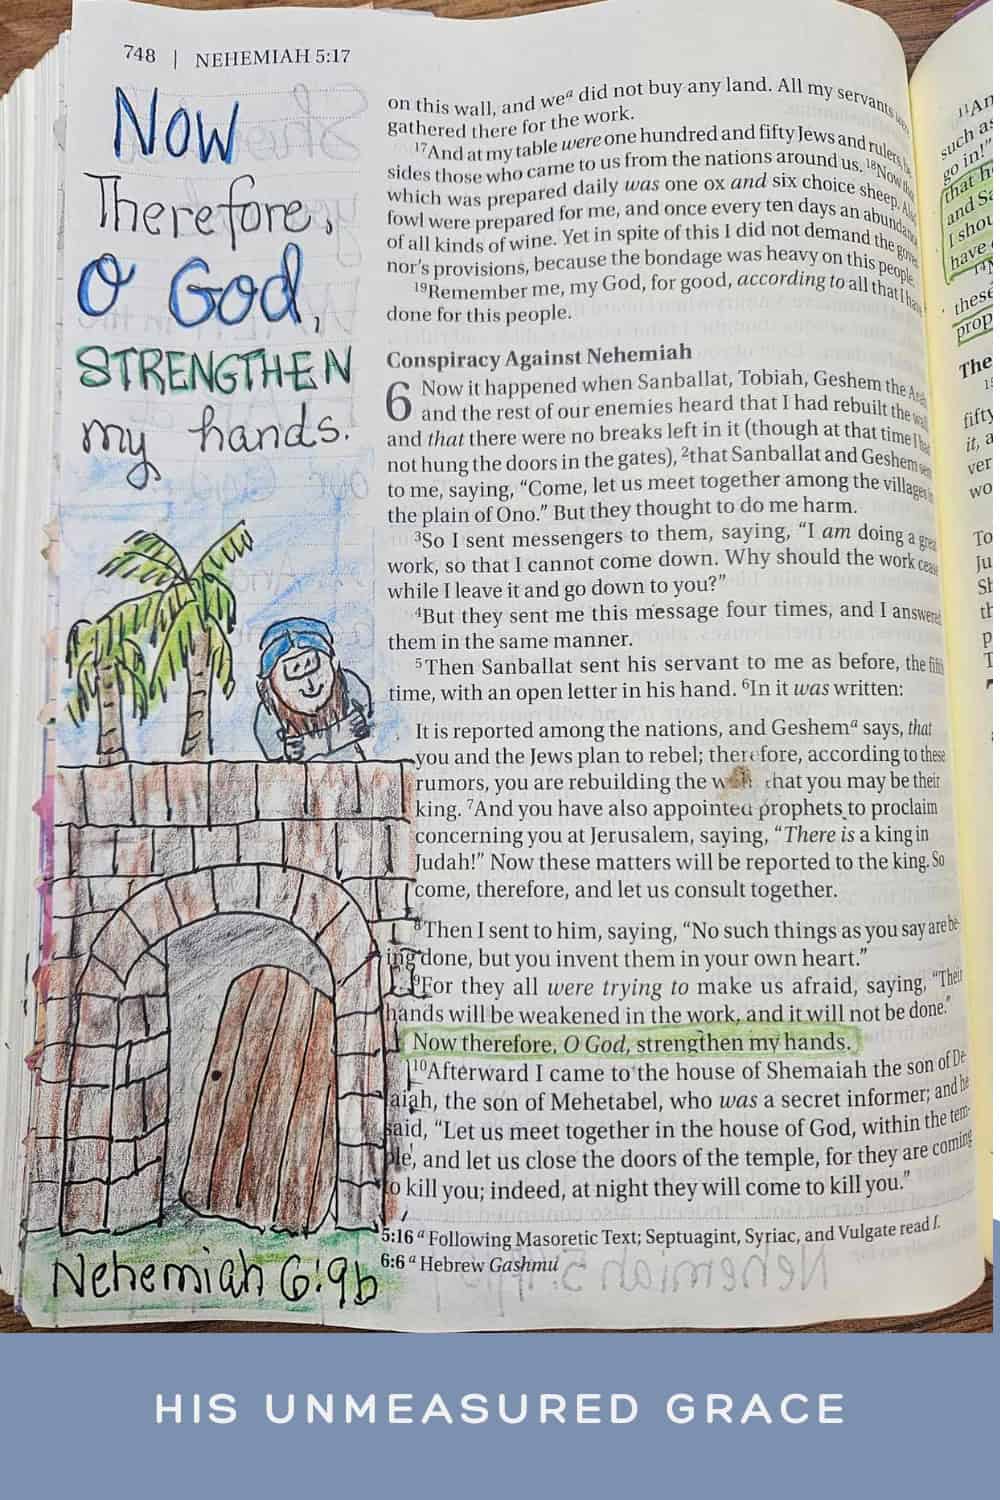 748 | NEHEMIAH 5:17
Now
Therefore,
O God,
STRENGTHEN
my hands.
Nehemiah 6:9b
on this wall, and weᵃ did not buy any land. All my servants were
gathered there for the work.
¹⁷And at my table were one hundred and fifty Jews and rulers, be-
sides those who came to us from the nations around us. ¹⁸Now that
which was prepared daily was one ox and six choice sheep. Also
fowl were prepared for me, and once every ten days an abundance
of all kinds of wine. Yet in spite of this I did not demand the gover-
nor's provisions, because the bondage was heavy on this people.
¹⁹Remember me, my God, for good, according to all that I have
done for this people.
Conspiracy Against Nehemiah
6 Now it happened when Sanballat, Tobiah, Geshem the Arab,
and the rest of our enemies heard that I had rebuilt the wall,
and that there were no breaks left in it (though at that time I had
not hung the doors in the gates), ²that Sanballat and Geshem sent
to me, saying, “Come, let us meet together among the villages in
the plain of Ono.” But they thought to do me harm.
³So I sent messengers to them, saying, “I am doing a great
work, so that I cannot come down. Why should the work cease
while I leave it and go down to you?”
⁴But they sent me this message four times, and I answered
them in the same manner.
⁵Then Sanballat sent his servant to me as before, the fifth
time, with an open letter in his hand. ⁶In it was written:
It is reported among the nations, and Geshemᵃ says, that
you and the Jews plan to rebel; therefore, according to these
rumors, you are rebuilding the wall, that you may be their
king. ⁷And you have also appointed prophets to proclaim
concerning you at Jerusalem, saying, “There is a king in
Judah!” Now these matters will be reported to the king. So
come, therefore, and let us consult together.
⁸Then I sent to him, saying, “No such things as you say are be-
ing done, but you invent them in your own heart.”
⁹For they all were trying to make us afraid, saying, “Their
hands will be weakened in the work, and it will not be done.”
Now therefore, O God, strengthen my hands.
¹⁰Afterward I came to the house of Shemaiah the son of De-
laiah, the son of Mehetabel, who was a secret informer; and he
said, “Let us meet together in the house of God, within the tem-
ple, and let us close the doors of the temple, for they are coming
to kill you; indeed, at night they will come to kill you.”
5:16 ᵃ Following Masoretic Text; Septuagint, Syriac, and Vulgate read I.
6:6 ᵃ Hebrew Gashmu
¹¹An
such as
go in!”
that h
and Sa
I shou
have
these
prop
The
fifty
it, a
ver
wo
To
Ju
Sh
th
HIS UNMEASURED GRACE